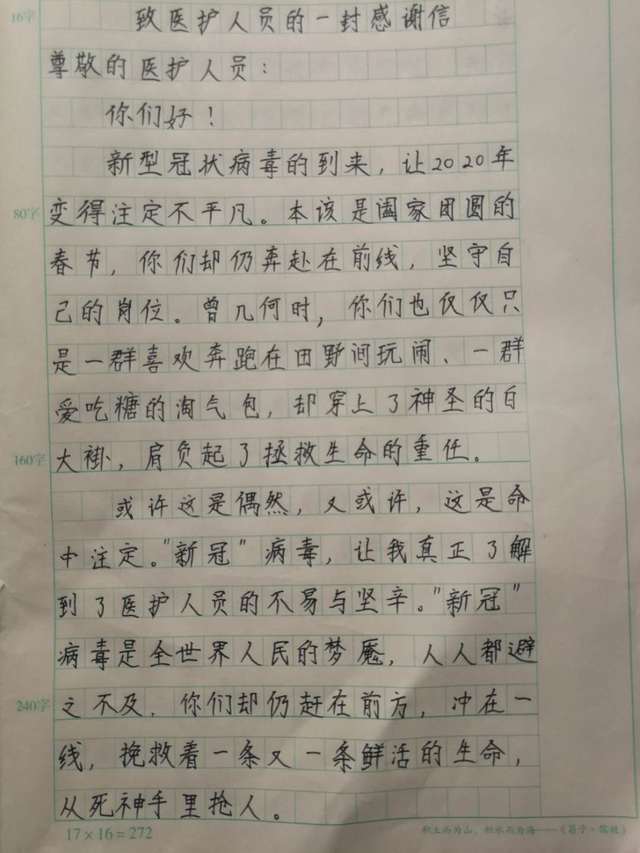 16字
致医护人员的一封感谢信
尊敬的医护人员：
你们好！
新型冠状病毒的到来，让2020年
80字
变得注定不平凡。本该是阖家团圆的
春节，你们却仍奔赴在前线，坚守自
己的岗位。曾几何时，你们也仅仅只
是一群喜欢奔跑在田野间玩闹、一群
爱吃糖的淘气包，却穿上了神圣的白
160字
大褂，肩负起了拯救生命的重任。
或许这是偶然，又或许，这是命
中注定。"新冠"病毒，让我真正了解
到了医护人员的不易与坚辛。"新冠"
病毒是全世界人民的梦魇，人人都避
240字
之不及，你们却仍赶在前方，冲在一
线，挽救着一条又一条鲜活的生命，
从死神手里抢人。
17×16=272
积土而为山，积水而为海——《荀子·儒效》